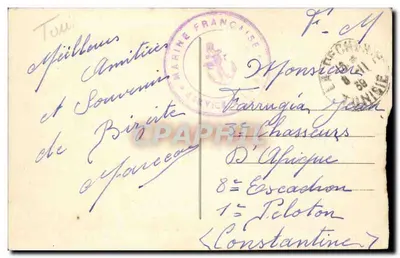 Tun
Meilleures
Amitiés
et Souvenirs
de Bizerte
Marceau
MARINE FRANÇAISE
SERVICE
F. M
Monsieur
Farrugia Jean
3e Chasseurs
D'Afrique
8e Escadron
1e Peloton
(Constantine)
TUNISIE